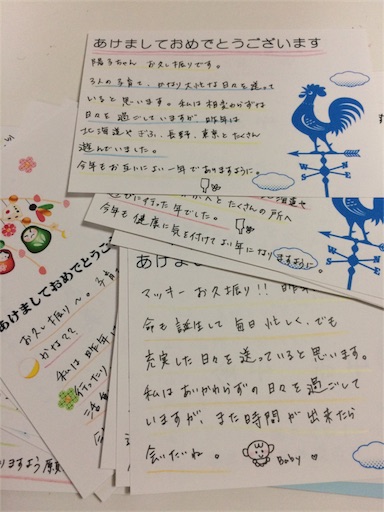 あけましておめでとうございます
陽子ちゃん お久し振りです。
3人の子育て、かなり大忙な日々を送って
いると思います。私は相変わらずな
日々を過ごしていますが 昨年は
北海道や ぎふ、長野、東京とたくさん
遊んでいました。
今年もお互いによい一年でありますように。
北海道や
へとたくさんの所へ
に行った年でした。
今年も健康に気を付けてよい年になり
ますように
あけま
マッキー お久し振り!! 昨
命も誕生して毎日忙しく、でも
充実した日々を送っていると思います。
私はあいかわらずの日々を過ごして
いますが、また時間が出来たら
会いたいね。
Baby
あけましておめでとうご
お久し振り〜。子育
かな??
私は昨年
行ったり
りますよう願